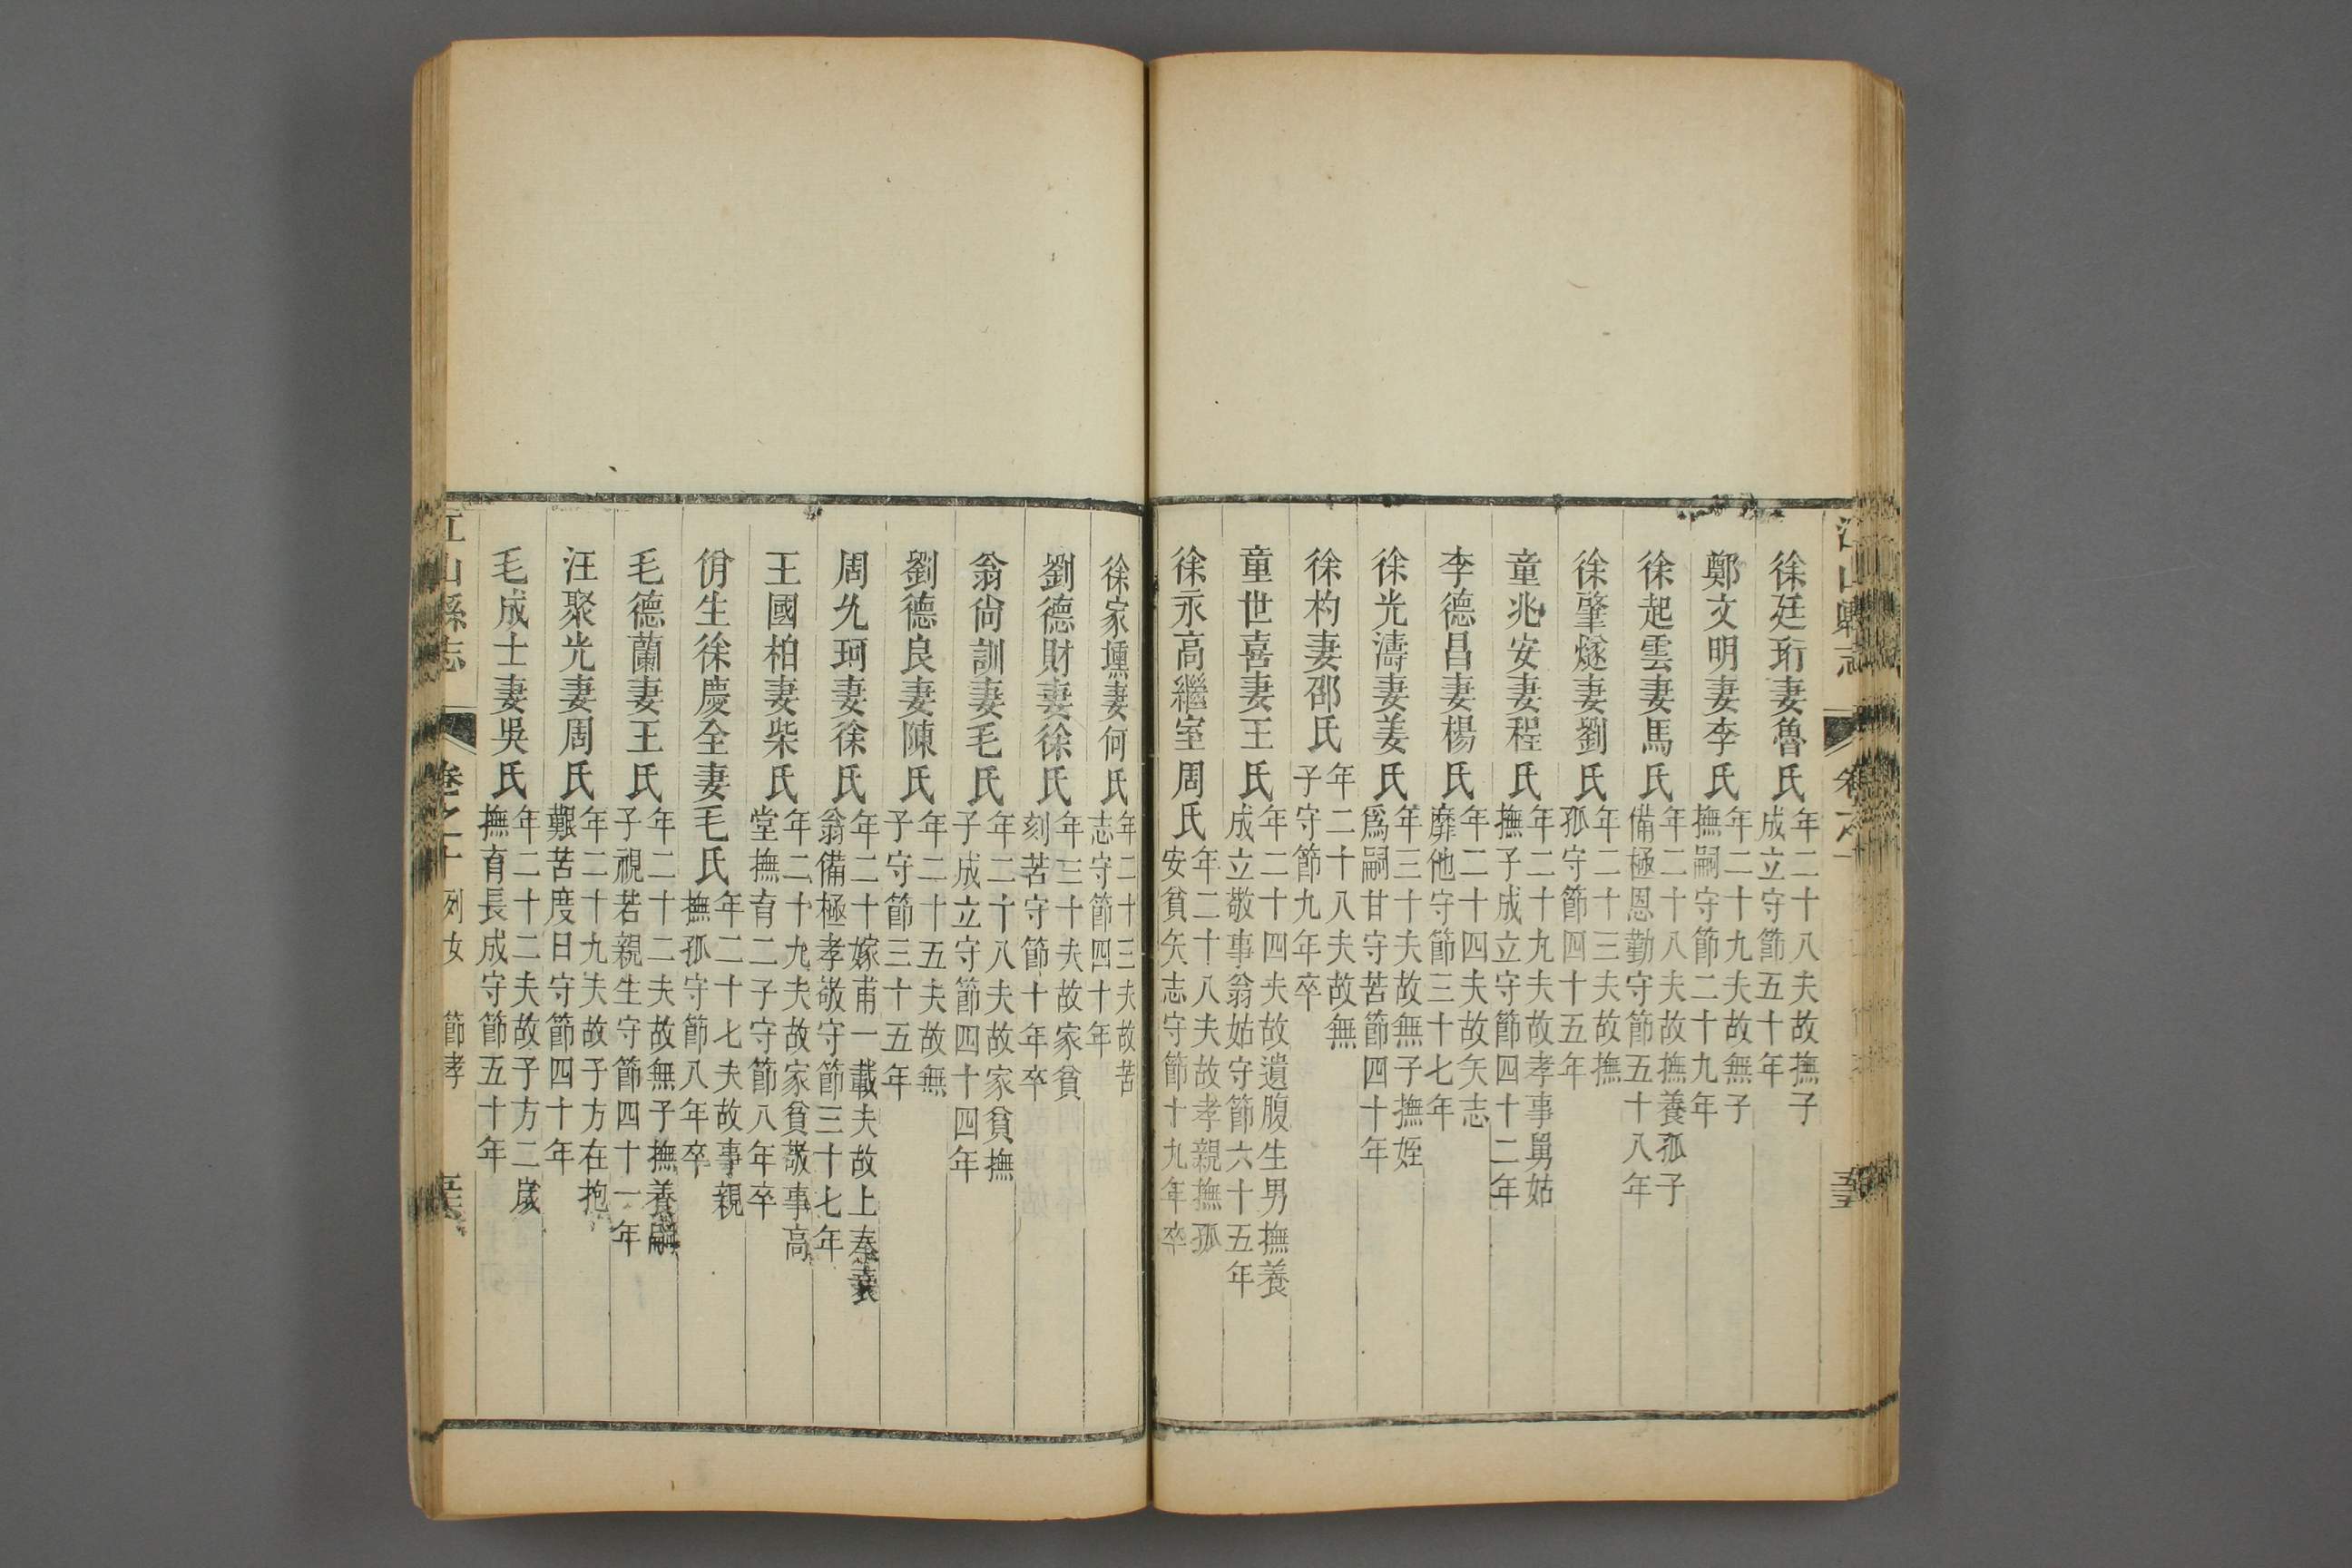 徐廷珩妻魯氏年二十八夫故撫子成立守節五十年
鄭文明妻李氏年二十九夫故無子撫嗣守節二十九年
徐起雲妻馬氏年二十八夫故撫養孤子備極恩勤守節五十八年
徐肇燧妻劉氏年二十三夫故撫孤守節四十五年
童兆安妻程氏年二十九夫故孝事舅姑撫子成立守節四十二年
李德昌妻楊氏年二十四夫故矢志靡他守節三十七年
徐光濤妻姜氏年三十夫故無子撫姪爲嗣甘守苦節四十年
徐杓妻邵氏年二十八夫故無子守節九年卒
童世喜妻王氏年二十四夫故遺腹生男撫養成立敬事翁姑守節六十五年
徐永高繼室周氏年二十八夫故孝親撫孤安貧矢志守節十九年卒
徐家壎妻何氏年二十三夫故苦志守節四十年
劉德財妻徐氏年三十夫故家貧刻苦守節十年卒
翁尙訓妻毛氏年二十八夫故家貧撫子成立守節四十四年
劉德良妻陳氏年二十五夫故無子守節三十五年
周允珂妻徐氏年二十嫁甫一載夫故上奉衰翁備極孝敬守節三十七年
王國柏妻柴氏年二十九夫故家貧敬事高堂撫育二子守節八年卒
佾生徐慶全妻毛氏年二十七夫故事親撫孤守節八年卒
毛德蘭妻王氏年二十二夫故無子撫養嗣子視若親生守節四十一年
汪聚光妻周氏年二十九夫故子方在抱艱苦度日守節四十年
毛成士妻吳氏年二十二夫故子方二歲撫育長成守節五十年
江山縣志 卷之十 列女 節孝